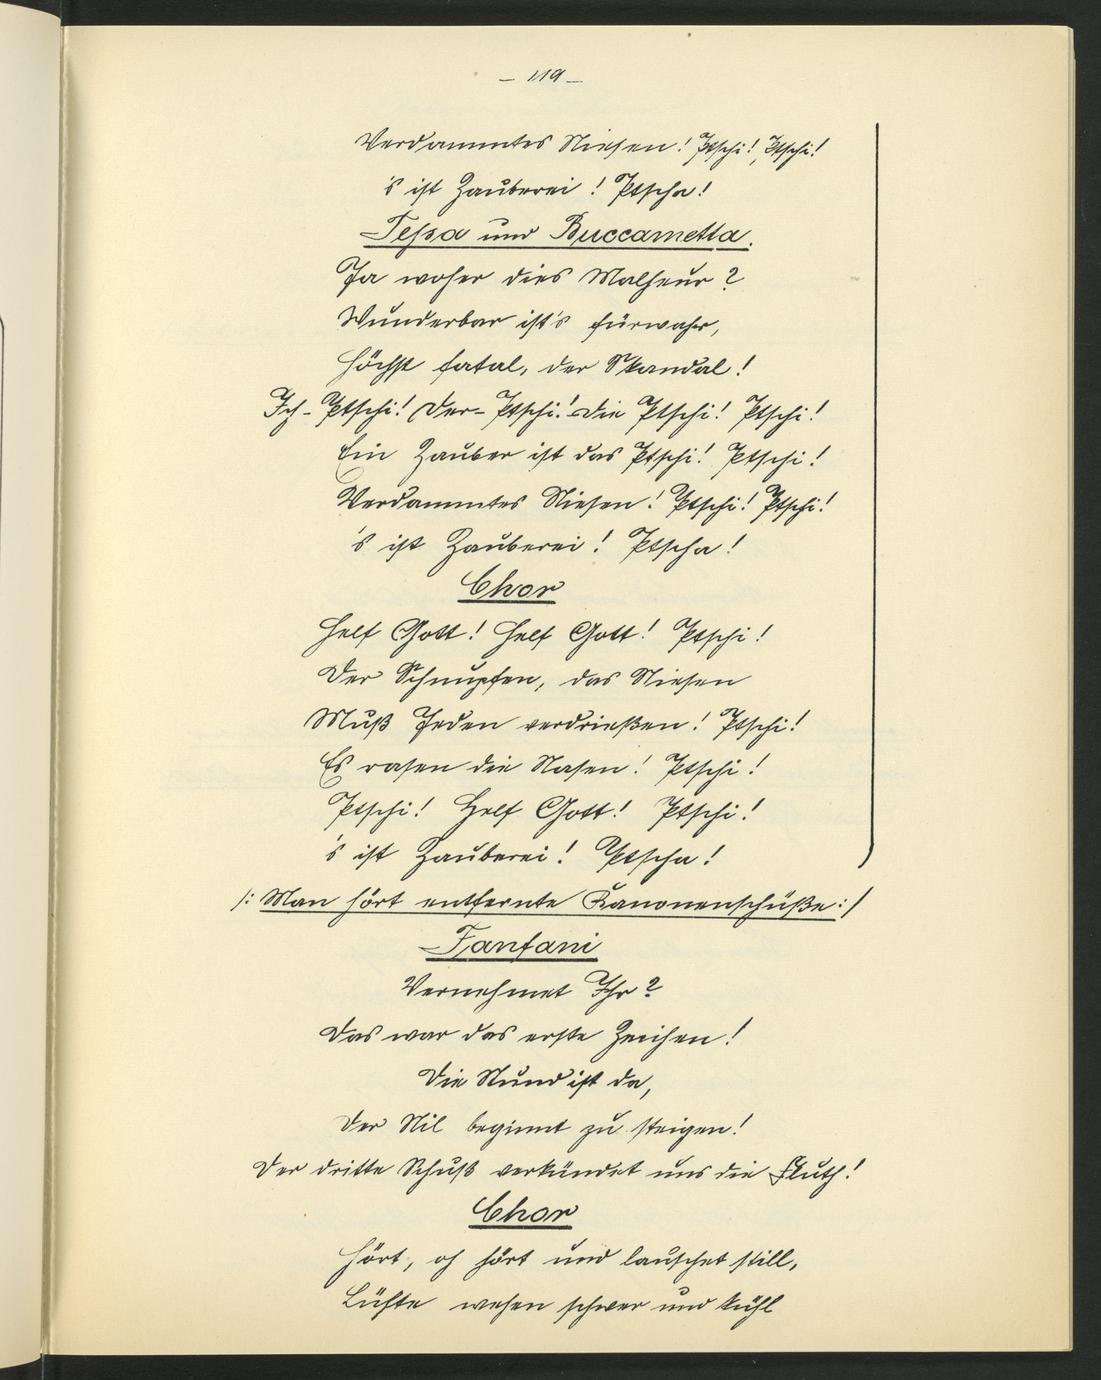 – 119 –
Verdammtes Niesen! Ptschi! Ptschi!
's ist Zauberei! Ptscha!
Tessa und Buccametta.
Ja woher dies Malheur?
Wunderbar ist's fürwahr,
Höchst fatal, der Skandal!
Ich- Ptschi! Der- Ptschi! die Ptschi! Ptschi!
Ein Zauber ist das Ptschi! Ptschi!
Verdammtes Niesen! Ptschi! Ptschi!
's ist Zauberei! Ptscha!
Chor
Helf Gott! Helf Gott! Ptschi!
Der Schnupfen, das Niesen
Muß Jeden verdrießen! Ptschi!
Es rasen die Nasen! Ptschi!
Ptschi! Helf Gott! Ptschi!
's ist Zauberei! Ptscha!
/: Man hört entfernte Kanonenschüße :/
Fanfani
Vernehmet Ihr?
Das war das erste Zeichen!
Die Stund ist da,
Der Nil beginnt zu steigen!
Der dritte Schuß verkündet uns die Fluth!
Chor
Hört, oh hört und lauschet still,
Lüfte wehen schwer und kühl